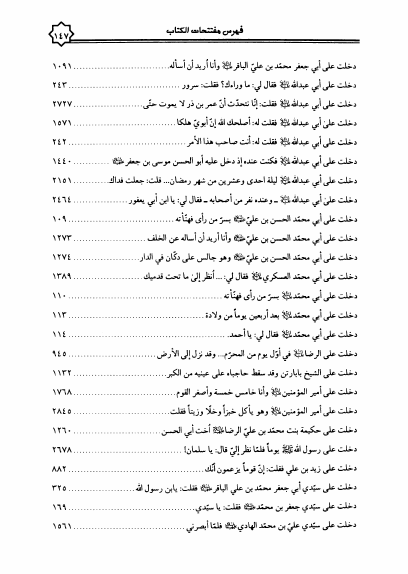 فهرس مفتتحات الكتاب
١٤٧
دخلت على أبي جعفر محمّد بن عليّ الباقر ﷺ وأنا أريد أن أسأله ١٠٩١
دخلت على أبي عبدالله ﷺ فقال لي: ما وراءك؟ فقلت: سرور ٢٤٣
دخلت على أبي عبدالله ﷺ فقلت: إنّا نتحدّث أنّ عمر بن ذر لا يموت حتّى ٢٧٢٧
دخلت على أبي عبدالله ﷺ فقلت له: أصلحك الله إنّ أبويّ هلكا ١٥٧١
دخلت على أبي عبدالله ﷺ فقلت له: أنت صاحب هذا الأمر ٢٤٢
دخلت على أبي عبدالله ﷺ فكنت عنده إذ دخل عليه أبو الحسن موسى بن جعفر ﷺ ١٤٤٠
دخلت على أبي عبدالله ﷺ ليلة احدى وعشرين من شهر رمضان... قلت: جعلت فداك ٢١٥١
دخلت على أبي عبدالله ﷺ ـ وعنده نفر من أصحابه ـ فقال لي: يا ابن أبي يعفور ٢٤٦٤
دخلت على أبي محمّد الحسن بن عليّ ﷺ بسرّ من رأى فهنّأته ١٠٩
دخلت على أبي محمّد الحسن بن عليّ ﷺ وأنا أريد أن أساله عن الخلف ١٢٧٣
دخلت على أبي محمّد الحسن بن عليّ ﷺ وهو جالس على دكّان في الدار ١٢٧٤
دخلت على أبي محمّد العسكري ﷺ فقال لي: ... أنظر إلى ما تحت قدميك ١٣٨٩
دخلت على أبي محمّد ﷺ بسرّ من رأى فهنّأته ١١٠
دخلت على أبي محمّد ﷺ بعد أربعين يوماً من ولادة ١١٣
دخلت على أبي محمّد ﷺ فقال لي: يا أحمد. ١١٤
دخلت على الرضا ﷺ في أوّل يوم من المحرّم... وقد نزل إلى الأرض ٩٤٥
دخلت على الشيخ بابارتن وقد سقط حاجباه على عينيه من الكبر ١١٣٢
دخلت على أمير المؤمنين ﷺ وأنا خامس خمسة وأصغر القوم ١٧٦٨
دخلت على أمير المؤمنين ﷺ وهو يأكل خبزاً وخلّا وزيتاً فقلت ٢٨٤٥
دخلت على حكيمة بنت محمّد بن عليّ الرضا ﷺ أخت أبي الحسن ١٢٦٠
دخلت على رسول الله ﷺ يوماً فلمّا نظر إليّ قال: يا سلمان! ٢٦٧٨
دخلت على زيد بن علي فقلت: إنّ قوماً يزعمون أنّك ٨٨٢
دخلت على سيّدي أبي جعفر محمّد بن علي الباقر ﷺ فقلت: يابن رسول الله ٣٢٥
دخلت على سيّدي جعفر بن محمّد ﷺ فقلت: يا سيّدي ١٦٩
دخلت على سيّدي عليّ بن محمّد الهادي ﷺ فلمّا أبصرني ١٥٦١